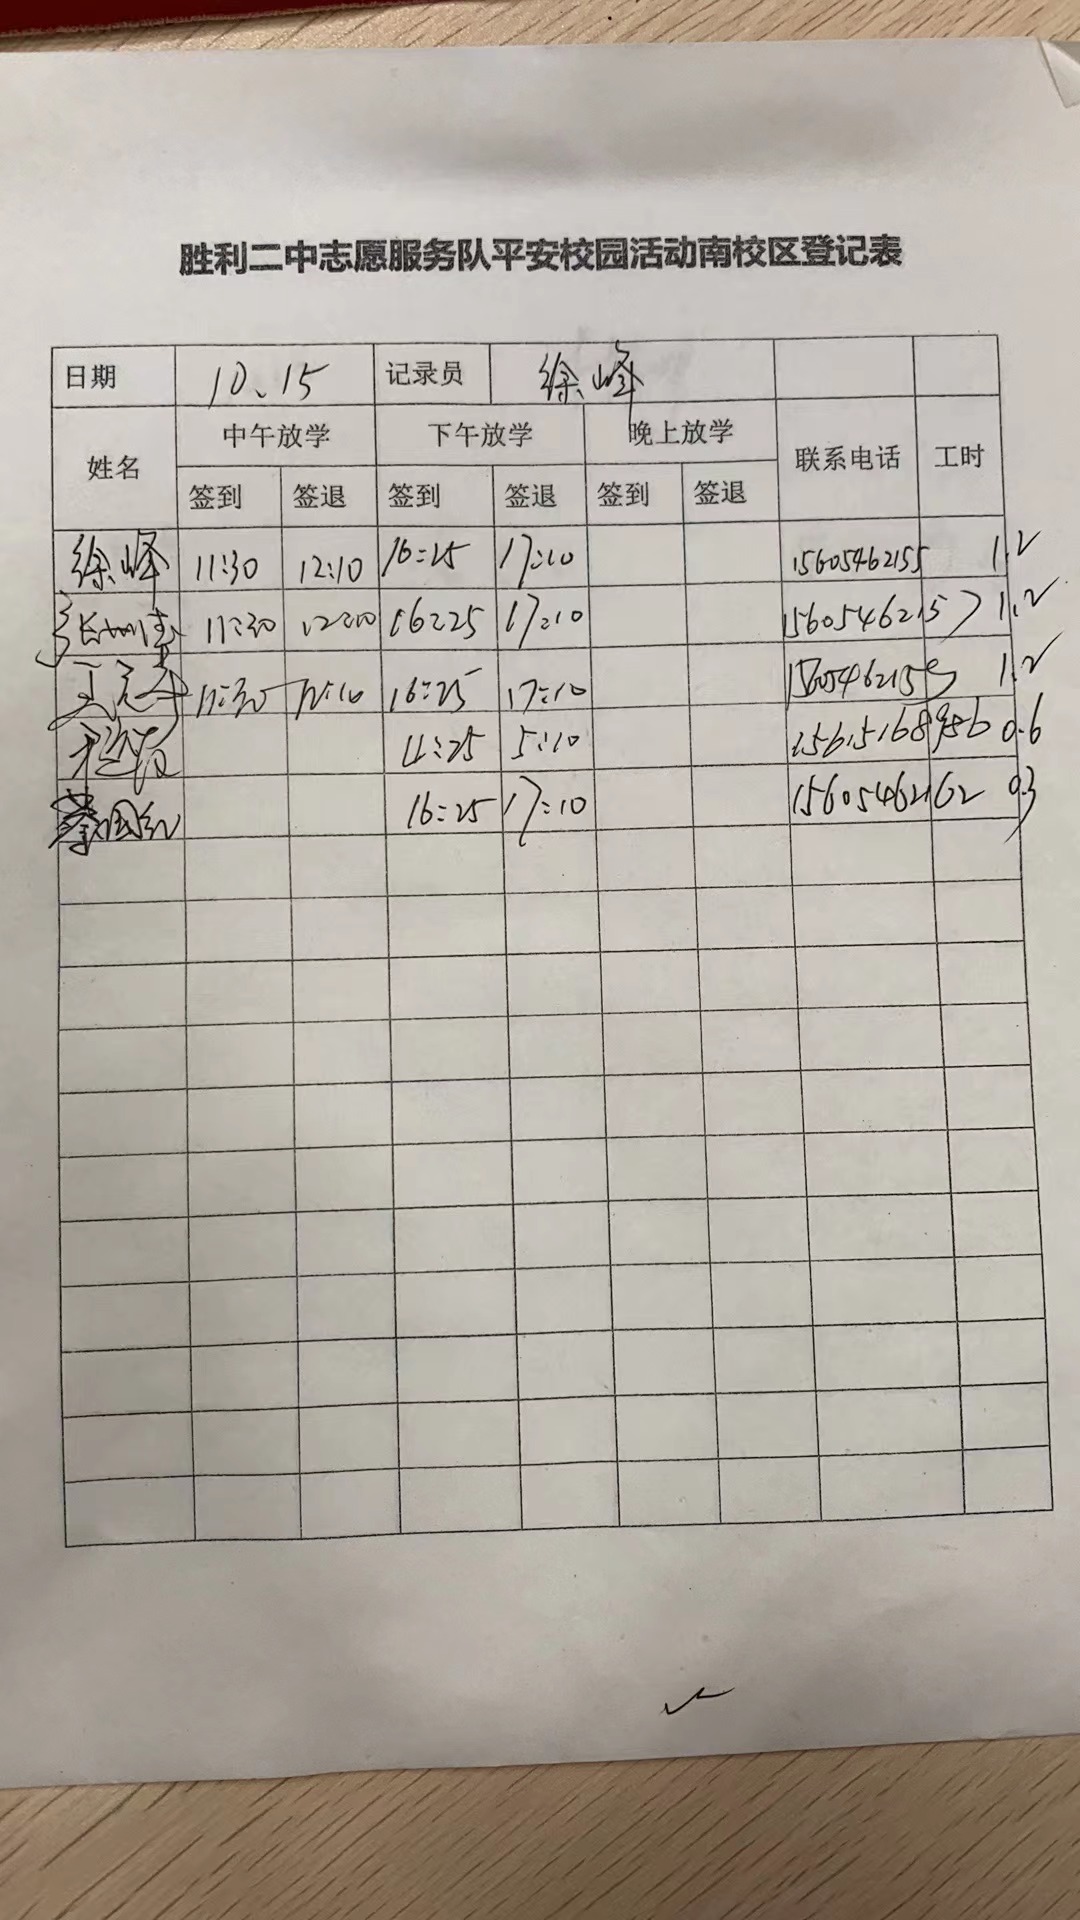 胜利二中志愿服务队平安校园活动南校区登记表
日期 10、15 记录员 徐峰
姓名 中午放学 下午放学 晚上放学 联系电话 工时
签到 签退 签到 签退 签到 签退
徐峰 11:30 12:10 16:25 17:10 15605462155 1.2
11:30 12:10 16:25 17:10 15605462157 1.2
11:30 12:10 16:25 17:10 1.2
4:25 5:10 15615168986 0.6
蔡国红 16:25 17:10 15605462162 0.3